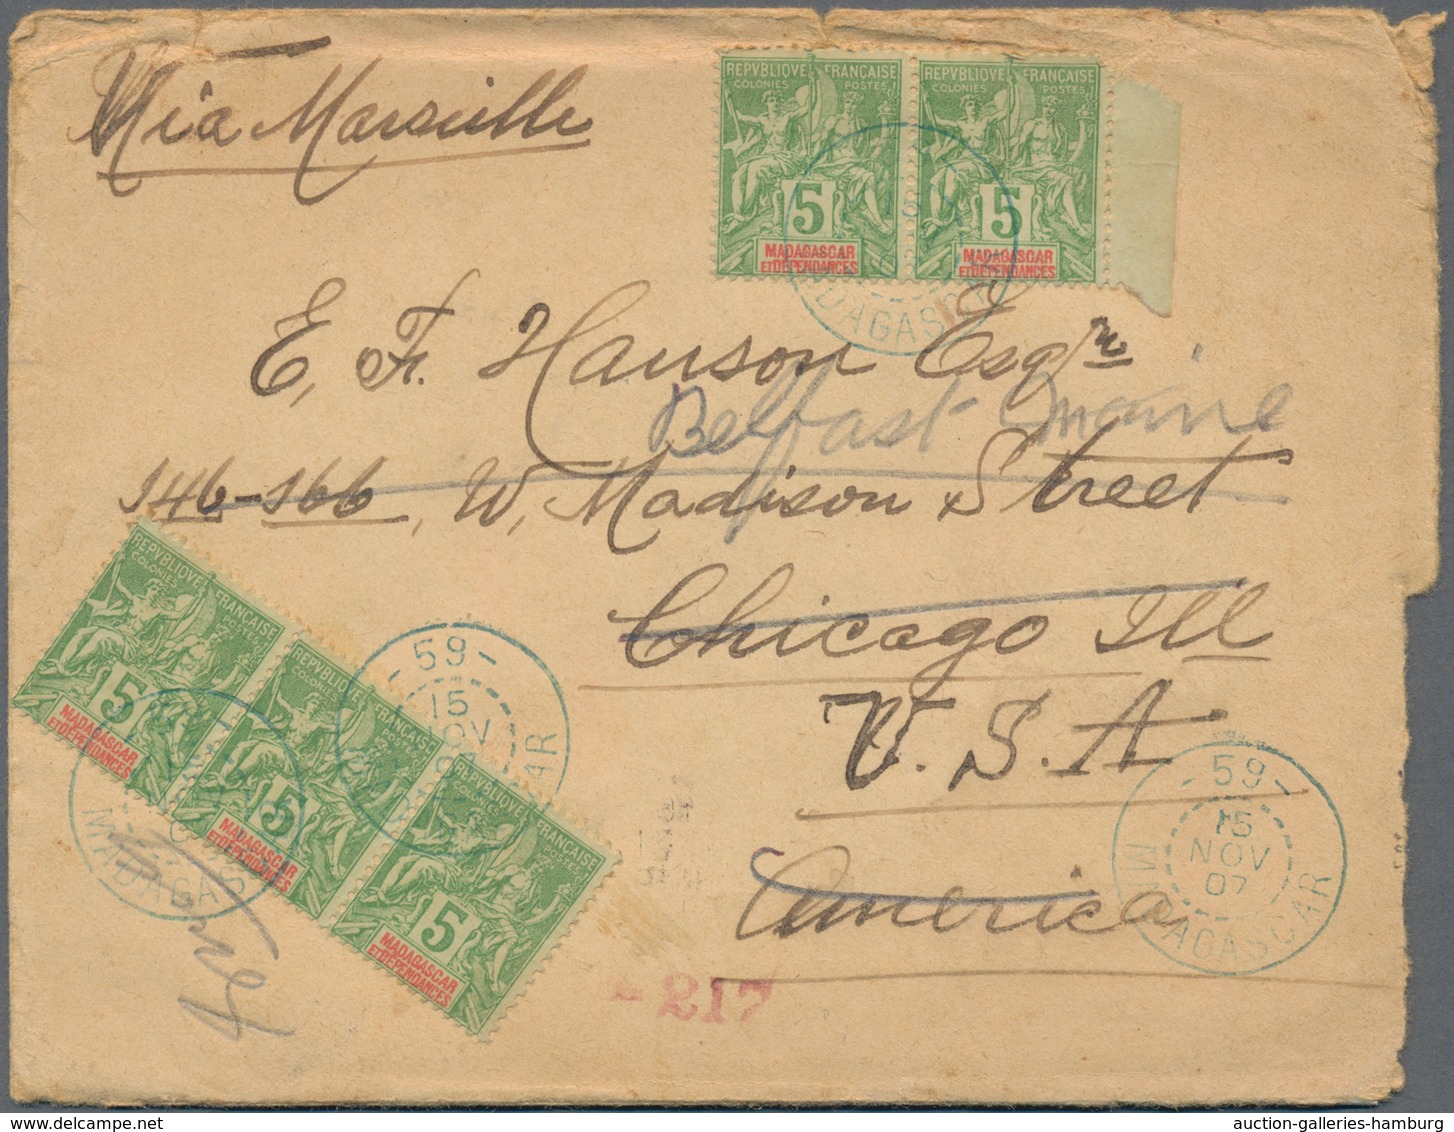 Via Marseille
REPVBLIQVE FRANÇAISE REPVBLIQVE FRANÇAISE
COLONIES POSTES COLONIES POSTES
5 5
MADAGASCAR MADAGASCAR
ET DÉPENDANCES ET DÉPENDANCES
MADAGASCAR
E. F. Hanson Esqre
Belfast Maine
146-166, W, Madison Street
Chicago Ill
U.S.A
America
REPVBLIQVE FRANÇAISE
COLONIES POSTES
5
MADAGASCAR
ET DÉPENDANCES
REPVBLIQVE FRANÇAISE
COLONIES POSTES
5
MADAGASCAR
ET DÉPENDANCES
REPVBLIQVE FRANÇAISE
COLONIES POSTES
5
MADAGASCAR
ET DÉPENDANCES
-59-
15
NOV
MADAGASCAR
-59-
15
NOV
07
MADAGASCAR
217
auction-galleries-hamburg